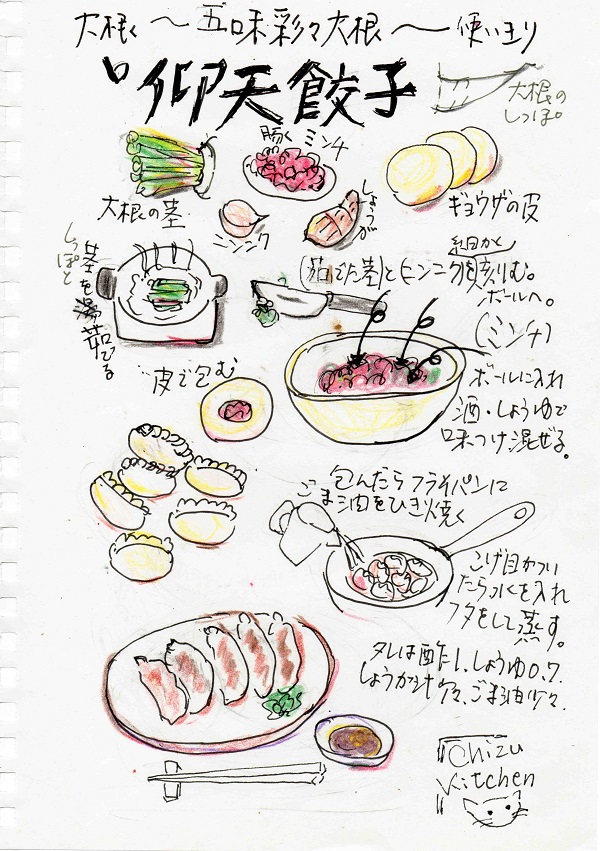 大根く〜五味彩々大根〜使い まり
仰天餃子
大根の
しっぽ。
大根の茎
豚く ミンチ
ニンニク
しょうが
ギョウザの皮
しっぽと
茎を湯茹でる
細かく
(茹でた茎)とニンニクを刻む。
ボールへ。
(ミンチ)
ボールに入れ
酒・しょうゆで
味つけ混ぜる。
皮で包む
包んだらフライパンに
ごま油をひき焼く
こげ目がつい
たら水を入れ
フタをして蒸す。
タレは酢1.しょうゆ0.7.
しょうが汁少々、ごま油少々.
Chizu
Kitchen